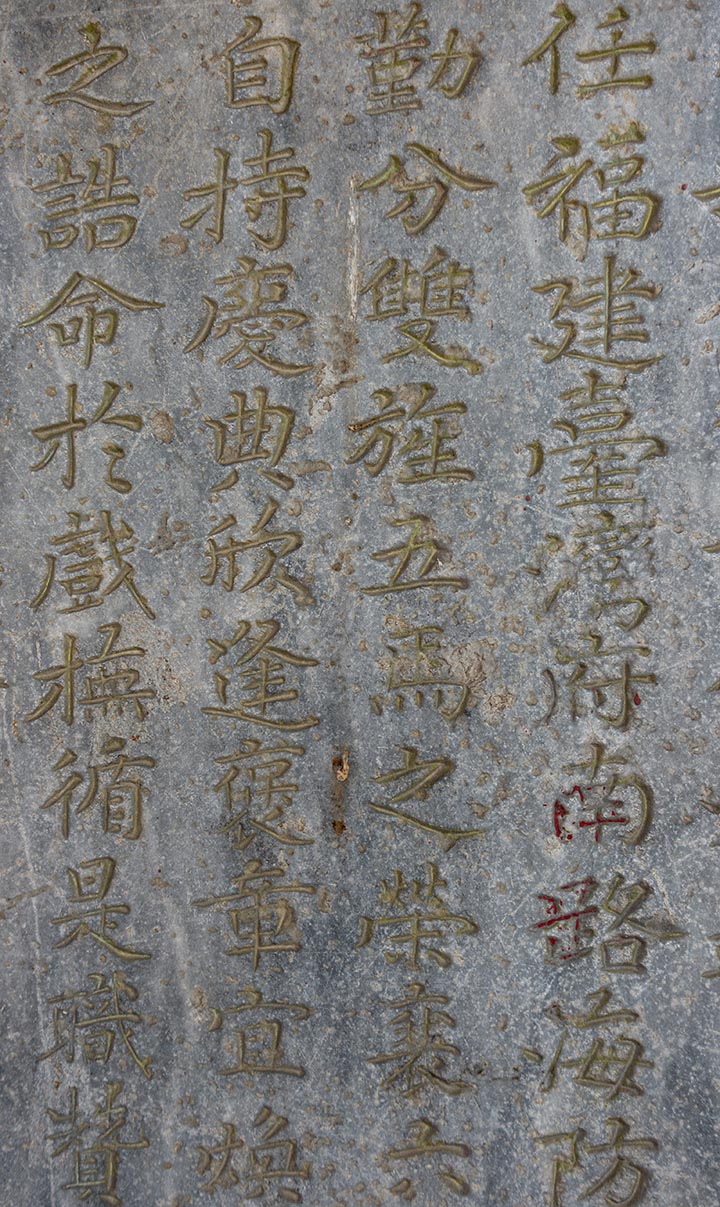 任福建臺灣府南路海防
勤分雙旌五馬之榮裘六
自持慶典欣逢褒章宜煥
之誥命於戲撫循是職贊